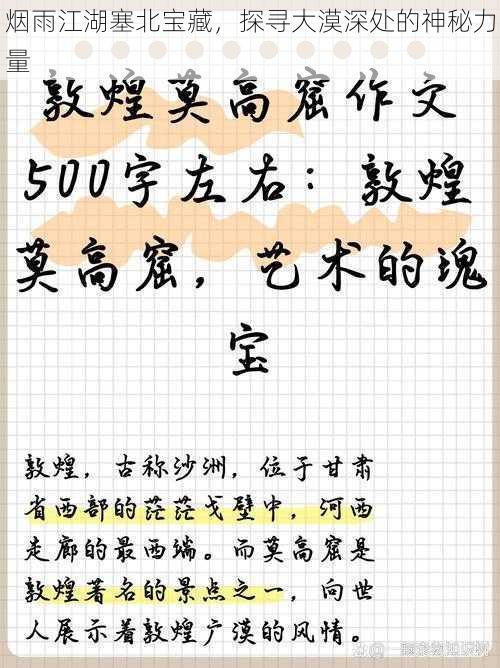 烟雨江湖塞北宝藏，探寻大漠深处的神秘力
量
敦煌莫高窟作文
500字左右：敦煌
莫高窟，艺术的瑰
宝
敦煌，古称沙洲，位于甘肃
省西部的茫茫戈壁中，河西
走廊的最西端。而莫高窟是
敦煌著名的景点之一，向世
人展示着敦煌广漠的风情。